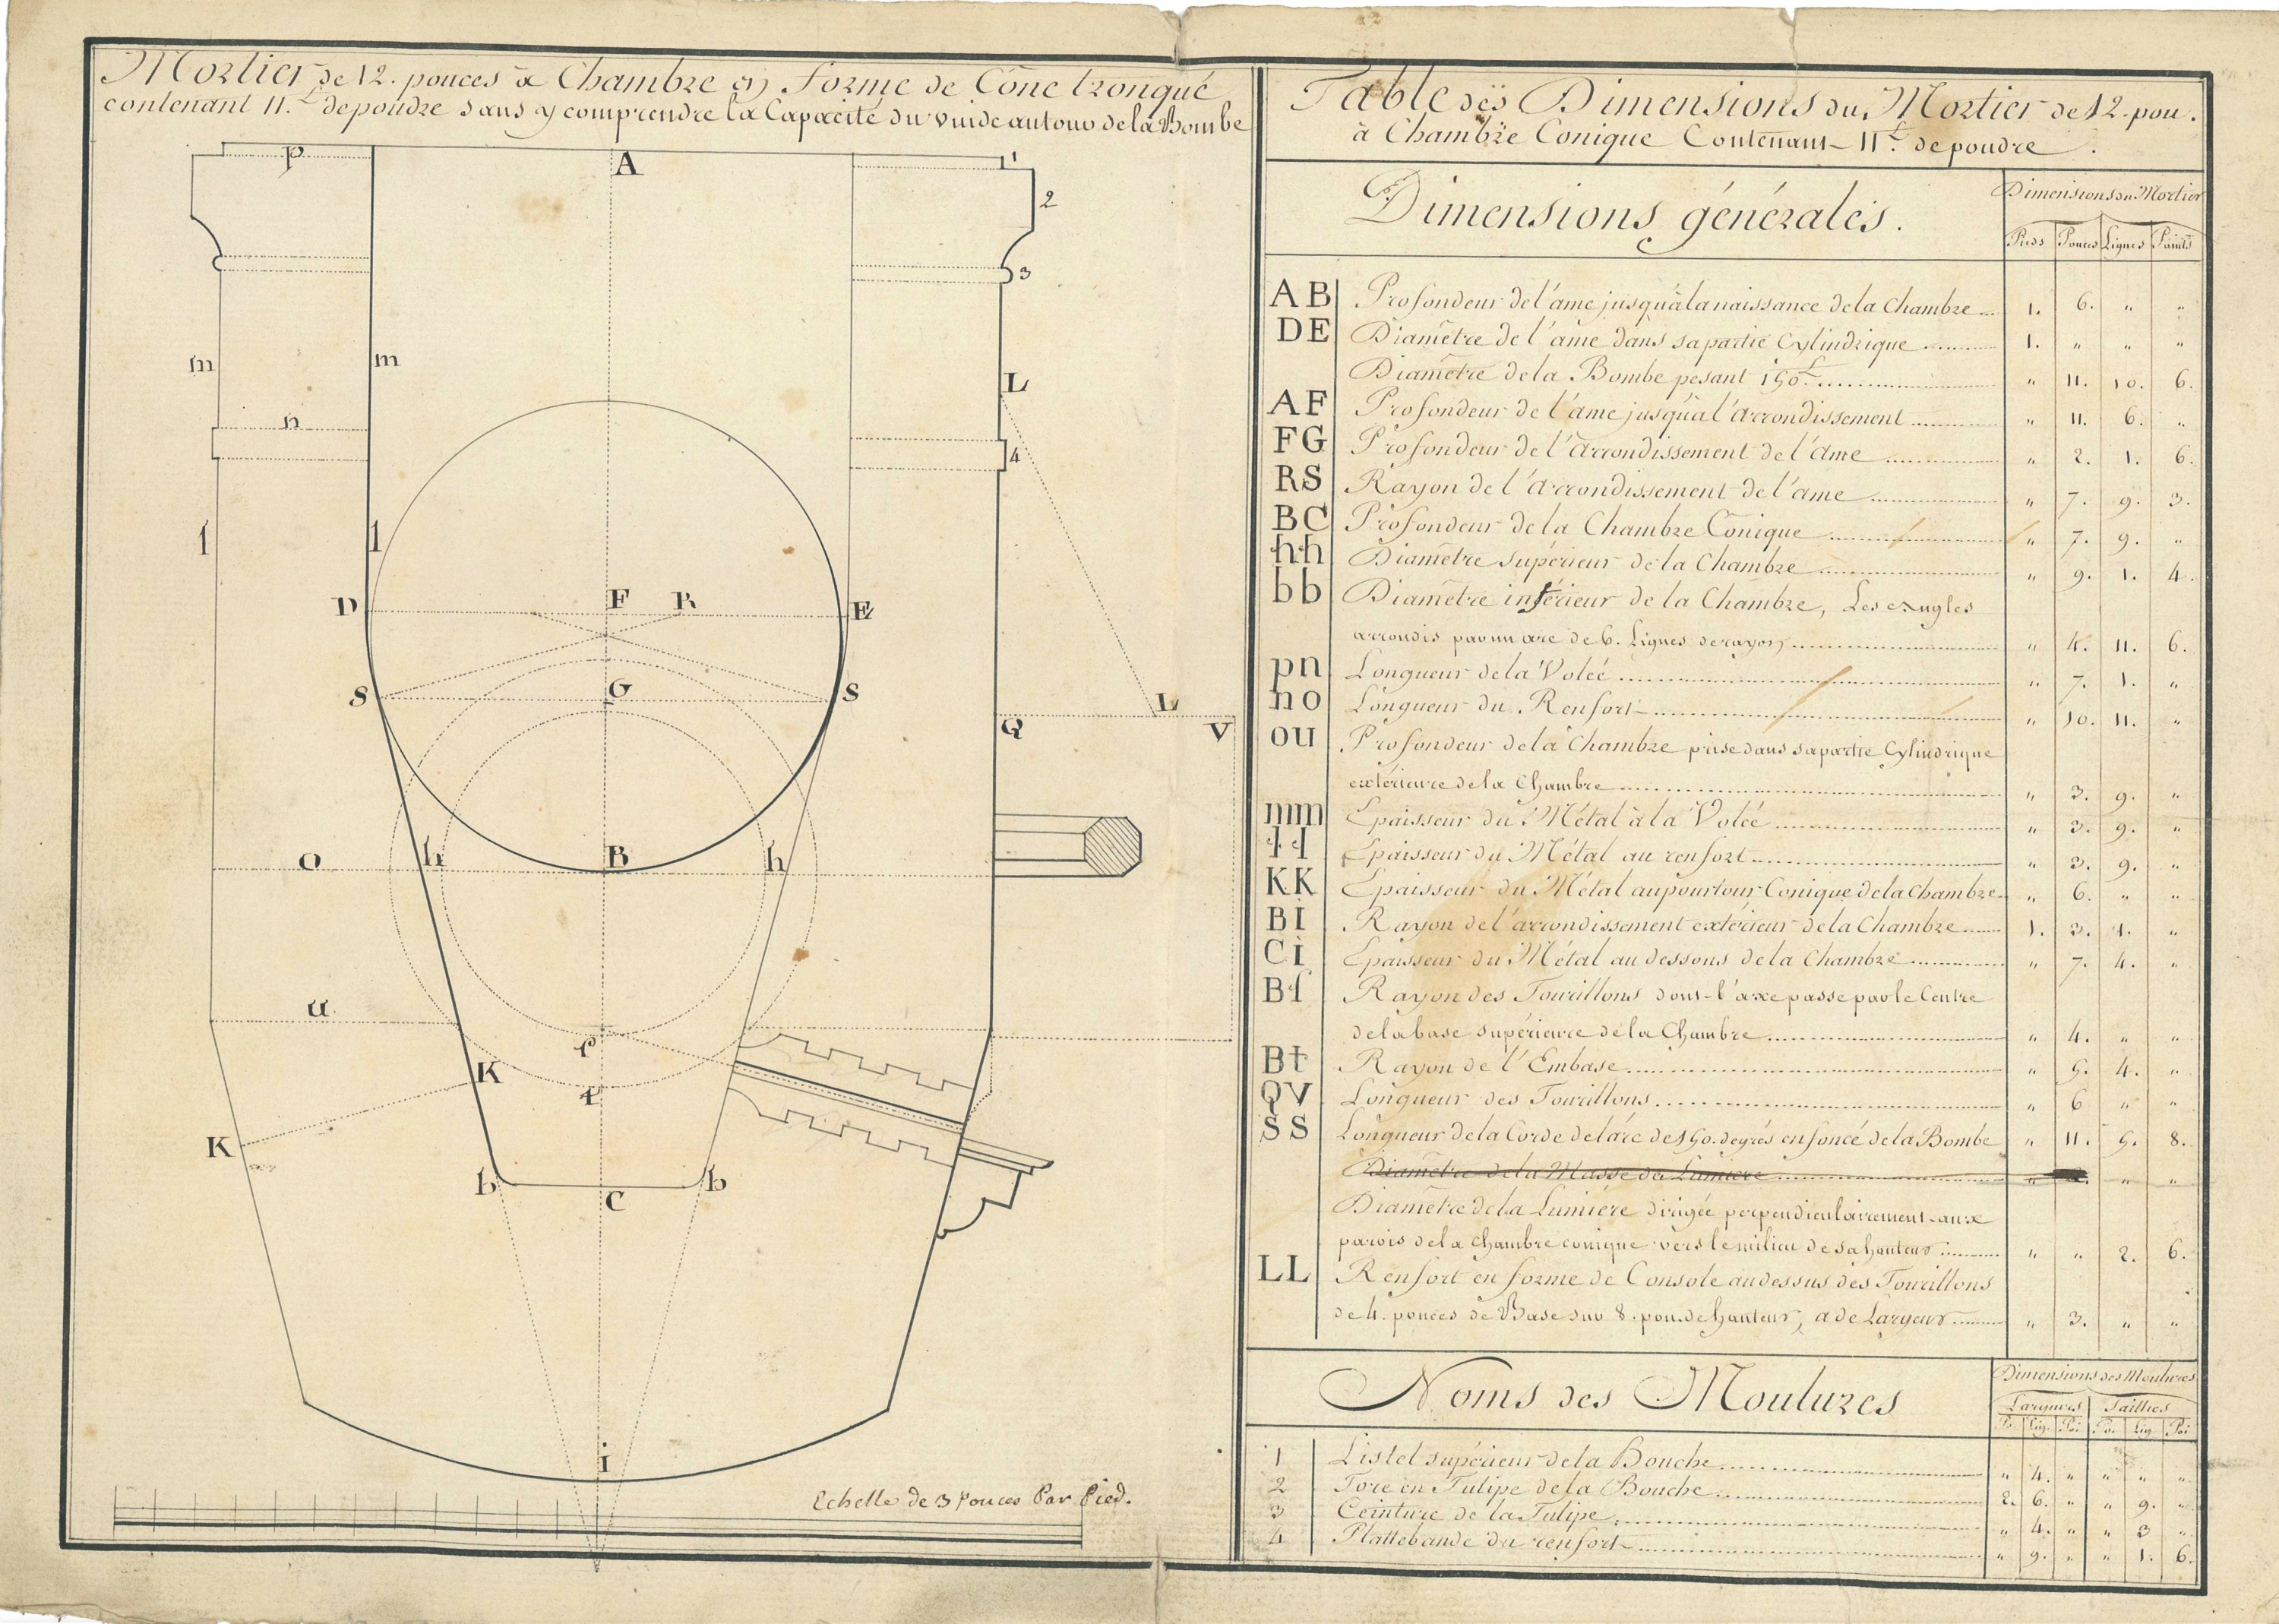 Mortier de 12. pouces à Chambre en forme de Cône tronqué
contenant 11.L de poudre sans y comprendre la Capacité du vuide autour de la Bombe
p
A
1
2
3
m
m
L
n
4
l
l
D
F
R
E
S
G
S
L
Q
V
o
h
B
h
u
r
K
t
K
b
C
b
i
Echelle de 3 Pouces Par Pied.
Table des Dimensions du Mortier de 12. pou.
à Chambre Conique Contenant 11.L de poudre.
Dimensions générales.
Dimensions du Mortier
Pieds Pouces Lignes Points
AB Profondeur de l'ame jusqu'à la naissance de la Chambre 1. 6. " "
DE Diamètre de l'ame dans sa partie Cylindrique 1. " " "
Diamètre de la Bombe pesant 150L " 11. 10. 6.
AF Profondeur de l'ame jusqu'a l'arrondissement " 11. 6. "
FG Profondeur de l'arrondissement de l'ame " 2. 1. 6.
RS Rayon de l'arrondissement de l'ame " 7. 9. 3.
BC Profondeur de la Chambre Conique " 7. 9. "
hh Diamètre supérieur de la Chambre " 9. 1. 4.
bb Diamètre inférieur de la Chambre, Les angles
arrondis par un arc de 6. Lignes de rayon " 4. 11. 6.
pn Longueur de la Volée " 7. 1. "
no Longueur du Renfort " 10. 11. "
ou Profondeur de la Chambre prise dans sa partie Cylindrique
extérieure de la Chambre " 3. 9. "
mm Epaisseur du Métal à la Volée " 3. 9. "
ll Epaisseur du Métal au renfort " 3. 9. "
KK Epaisseur du Métal au pourtour Conique de la Chambre " 6. " "
Bi Rayon de l'arrondissement extérieur de la Chambre 1. 3. 1. "
Ci Epaisseur du Métal au dessous de la Chambre " 7. 4. "
Bf Rayon des Tourillons dont l'axe passe par le Centre
de la base supérieure de la Chambre " 4. " "
Bt Rayon de l'Embase " 5. 4. "
QV Longueur des Tourillons " 6 " "
SS Longueur de la Corde de l'arc de 150. degrés enfoncé de la Bombe " 11. 5. 8.
Diamètre de la Masse de Lumiere " " "
Diamètre de la Lumiére dirigée perpendiculairement aux
parois de la Chambre conique vers le milieu de sa hauteur " " 2. 6.
LL Renfort en forme de Console au dessus des Tourillons
de 4. pouces de Base sur 8. pou. de hauteur, a de Largeur " 3. " "
Noms des Moulures
Dimensions des Moulures
Largeures Saillies
Po. Lig. Poi Po. Lig. Poi
1 Listel supérieur de la Bouche " 4. " " " "
2 Tore en Tulipe de la Bouche 2. 6. " " 9. "
3 Ceinture de la Tulipe " 4. " " 3 "
4 Plattebande du renfort " 9. " " 1. 6.